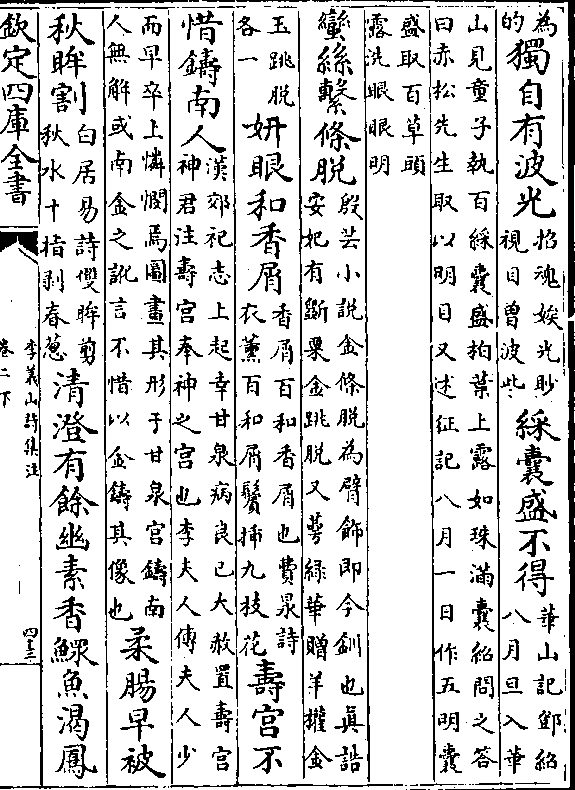 為
的
獨自有波光
招魂娭光眇
視目曽波些
綵囊盛不得
華山記鄧紹
八月旦入華
山見童子執百綵囊盛柏葉上露如珠滿囊紹問之答
曰赤松先生取以明目又述征記八月一日作五明囊
盛取百草頭
露洗眼眼明
蠻絲繫條脫
殷芸小說金條脫為臂飾即今釧也真誥
安妃有斵粟金跳脫又萼緑華贈羊權金
玉跳脫
各一
妍眼和香屑
香屑百和香屑也費昶詩
衣薰百和屑鬢揷九枝花
壽宮不
惜鑄南人
漢郊祀志上起幸甘泉病良已大赦置壽宮
神君注壽宮奉神之宮也李夫人傳夫人少
而早卒上憐憫焉圖畫其形于甘泉宮鑄南
人無解或南金之訛言不惜以金鑄其像也
柔腸早被
秋眸割
白居易詩雙眸剪
秋水十指剥春蔥
清澄有餘幽素香鰥魚渴鳳
欽定四庫全書
李義山詩集注
卷二下
四十三